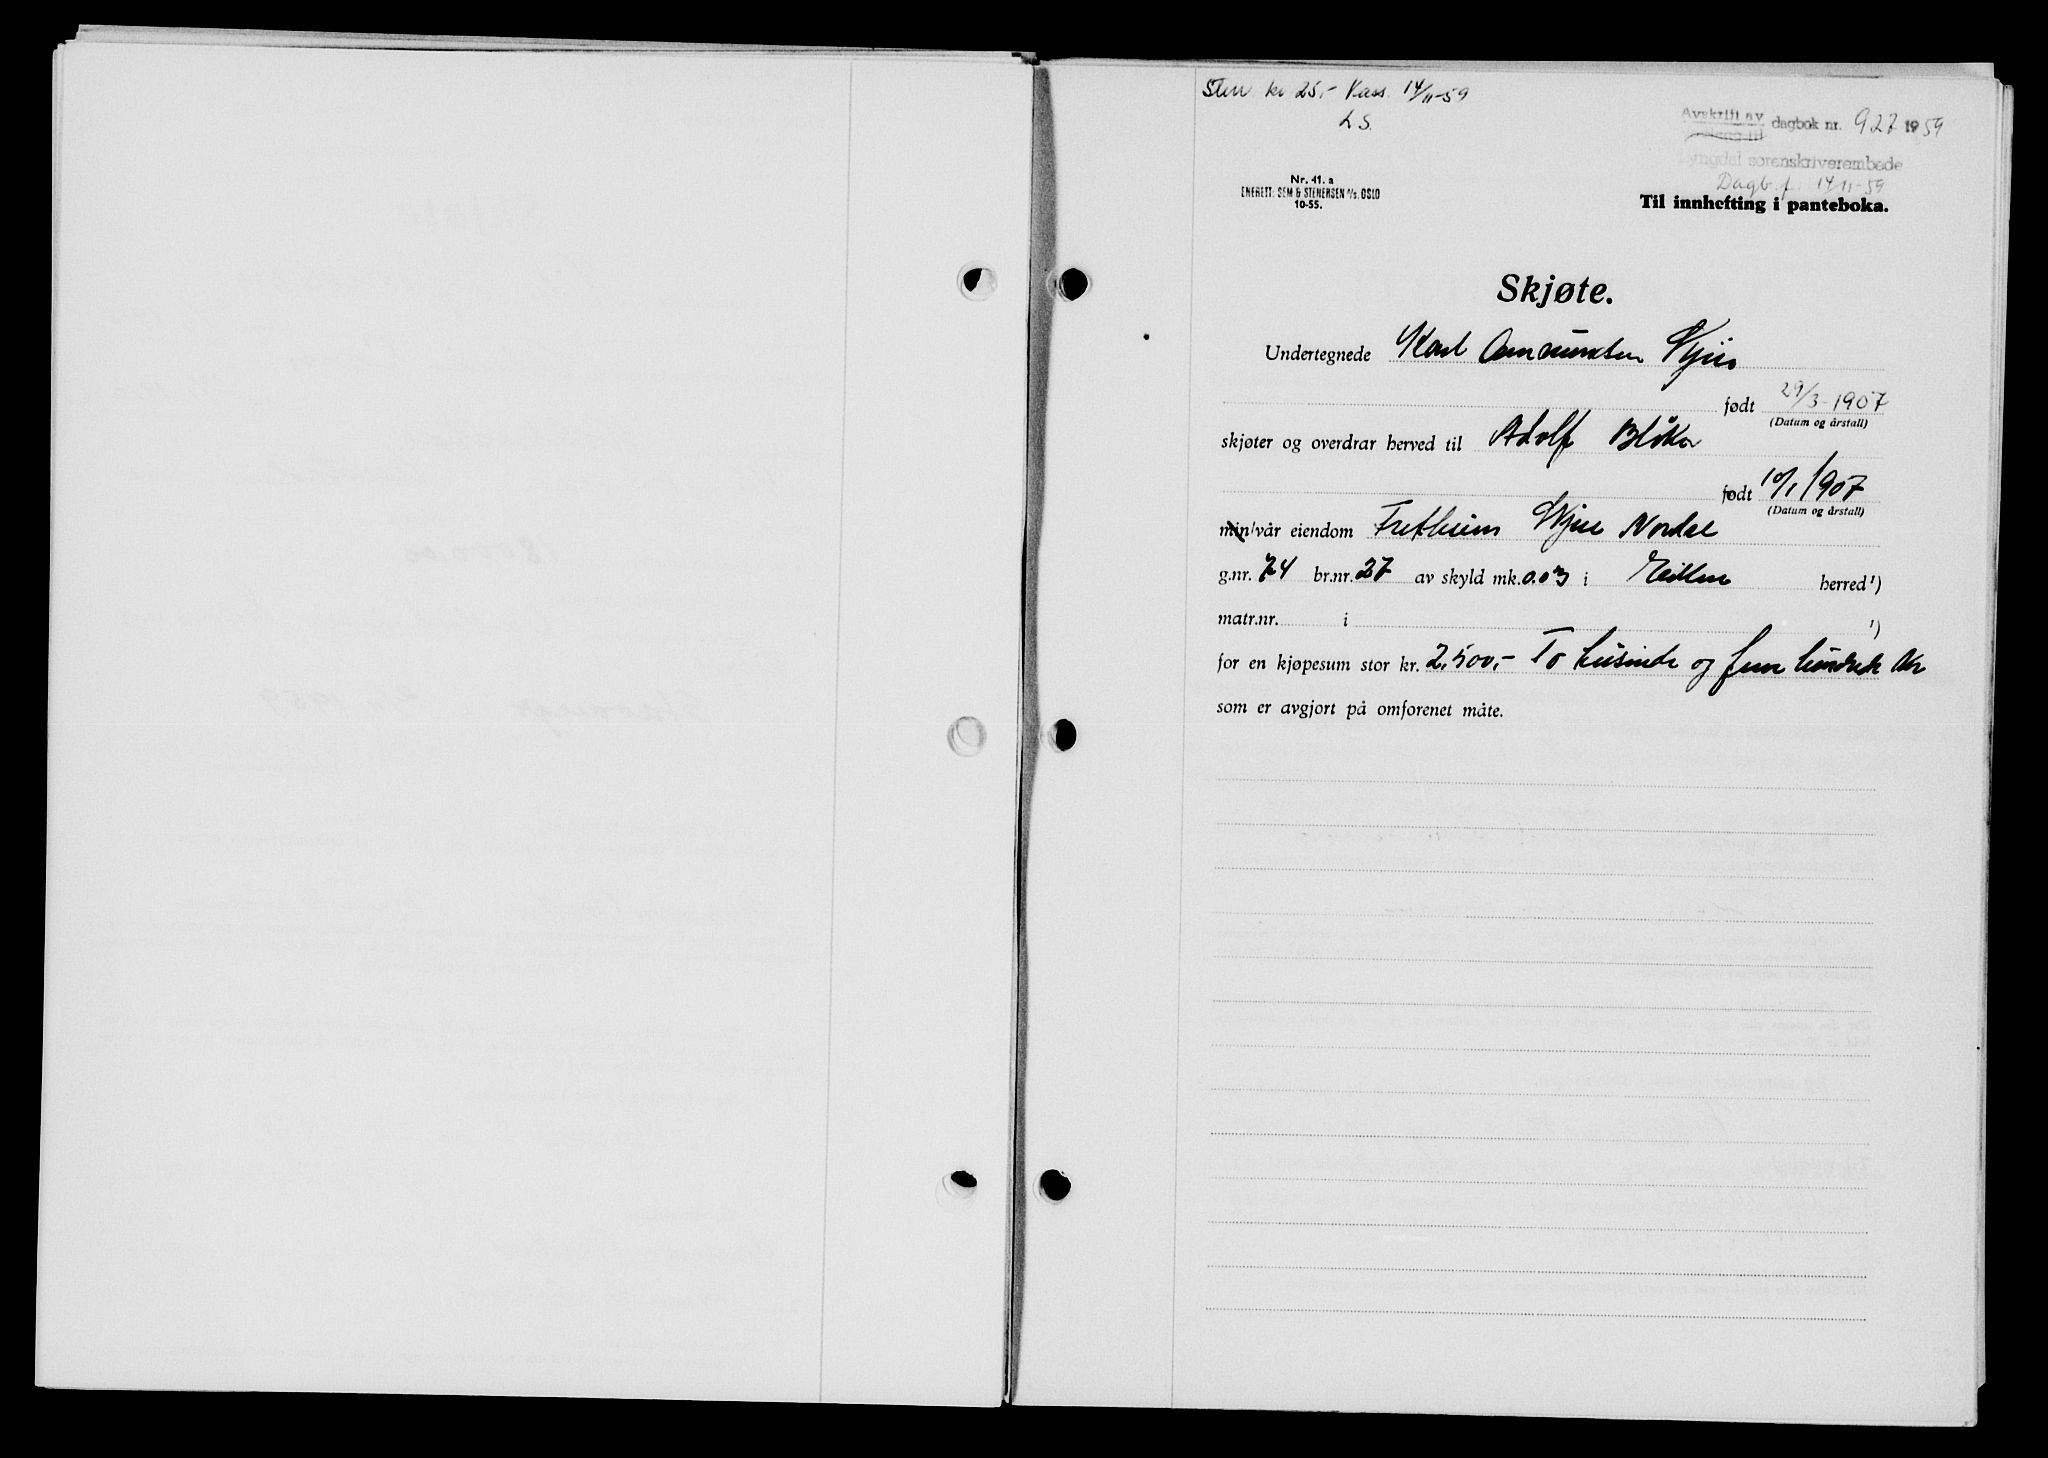 Stm. kr 25,- Kass. 14/11-59
L S.
Avskrift av dagbok nr. 927 1959
Lyngdal sorenskriverembede
Dagb. f. 14/11-59
Nr. 41. a
ENERETT: SEM & STENERSEN A/S. OSLO
10-55.
Til innhefting i panteboka.
Skjøte.
Undertegnede Karl Amundsen
født 29/3-1907
(Datum og årstall)
skjøter og overdrar herved til Adolf
født 10/1 1907
(Datum og årstall)
min/vår eiendom Nordre
g.nr. 74 br.nr. 27 av skyld mk. 0.03 i herred ¹)
matr.nr. i ¹)
for en kjøpesum stor kr. 2,500,- To tusinde og fem hundrede kr
som er avgjort på omforenet måte.